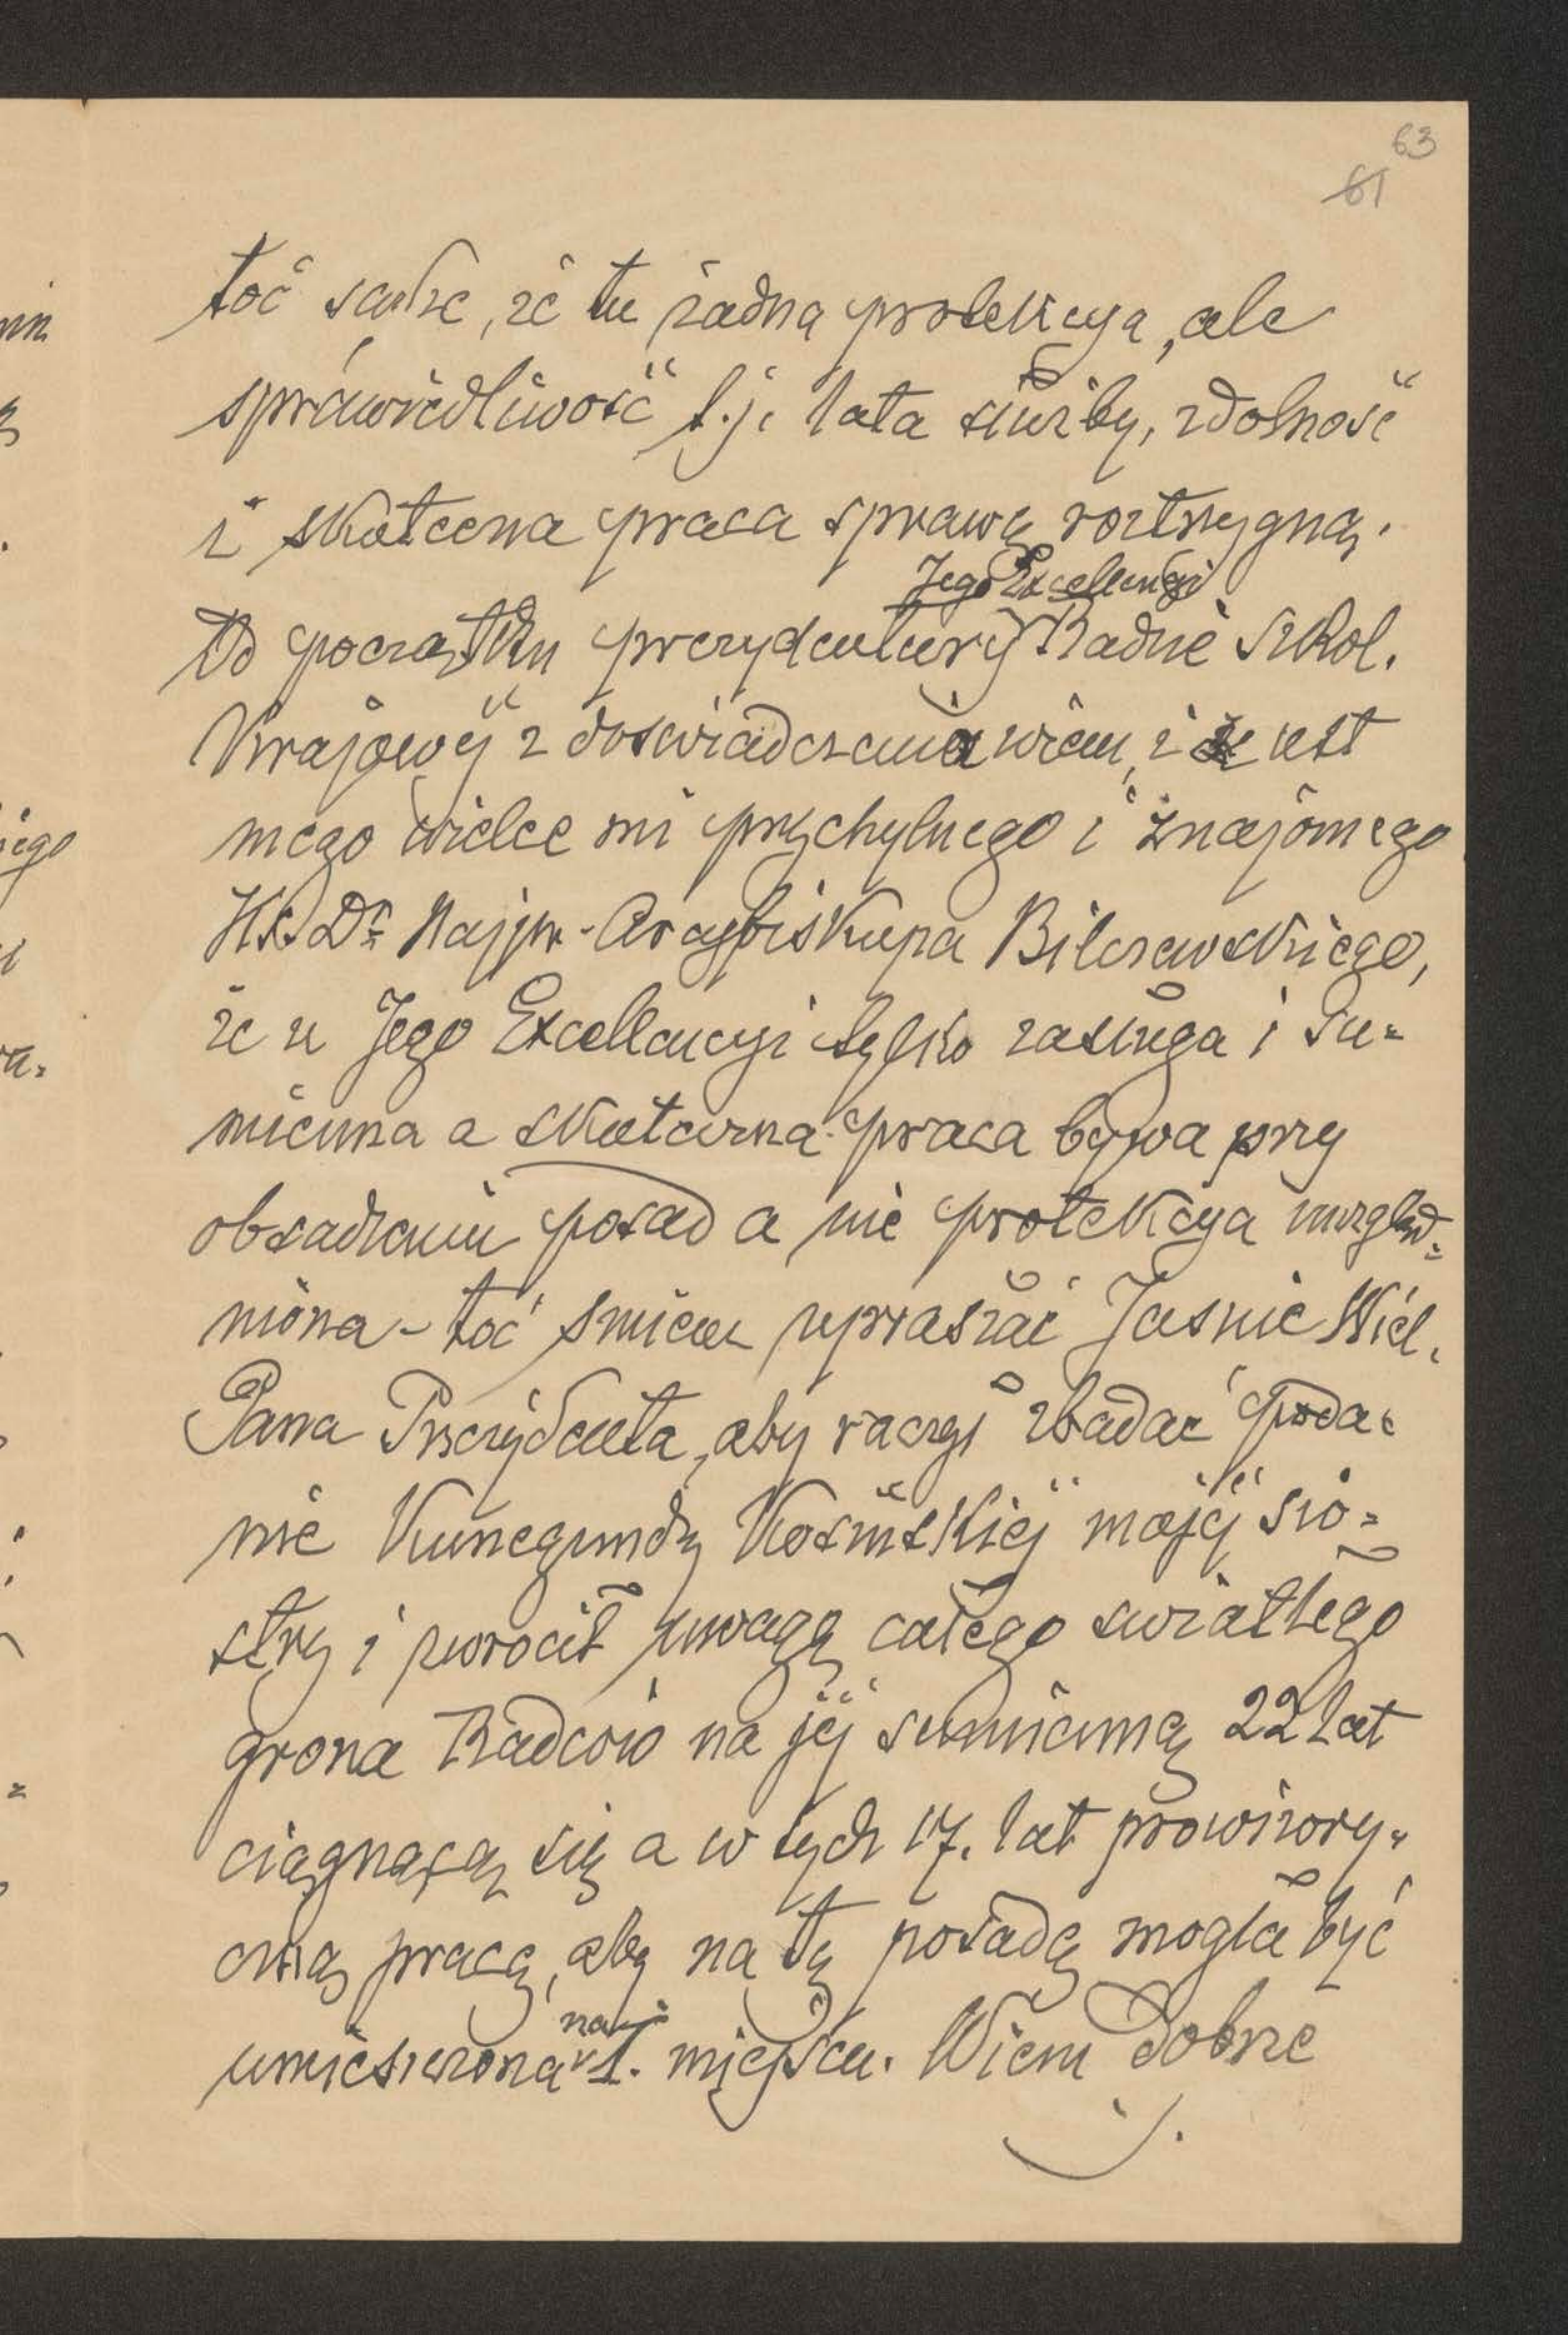 63
61
toć sądzę, że tu żadna protekcya, ale
sprawiedliwość t.j. lata służby, zdolność
i skuteczna praca sprawę roztrzygną.
Jego Excellencyi
Od początku prezydentury Radzie szkol.
Krajowej z doświadczenia wiem, i z ust
mego wielce mi przychylnego i znajomego
Ks. Dr. Najprz. Arcybiskupa Bilczewskiego,
że u Jego Excellencyi tylko zasługa i su-
mienna a skuteczna praca bywa przy
obsadzeniu posad a nie protekcya uwzględ-
niona - toć śmiem upraszać Jaśnie Wiel.
Pana Prezydenta, aby raczył zbadać poda-
nie Kunegundy Kosińskiej mojej sio-
stry i zwrócił uwagę całego światłego
grona Radców na jej sumienną 22 lat
ciągnącą się a w tych 17. lat prowizory-
czną pracę, aby na tę posadę mogła być
umieszczona na 1. miejscu. Wiem dobrze